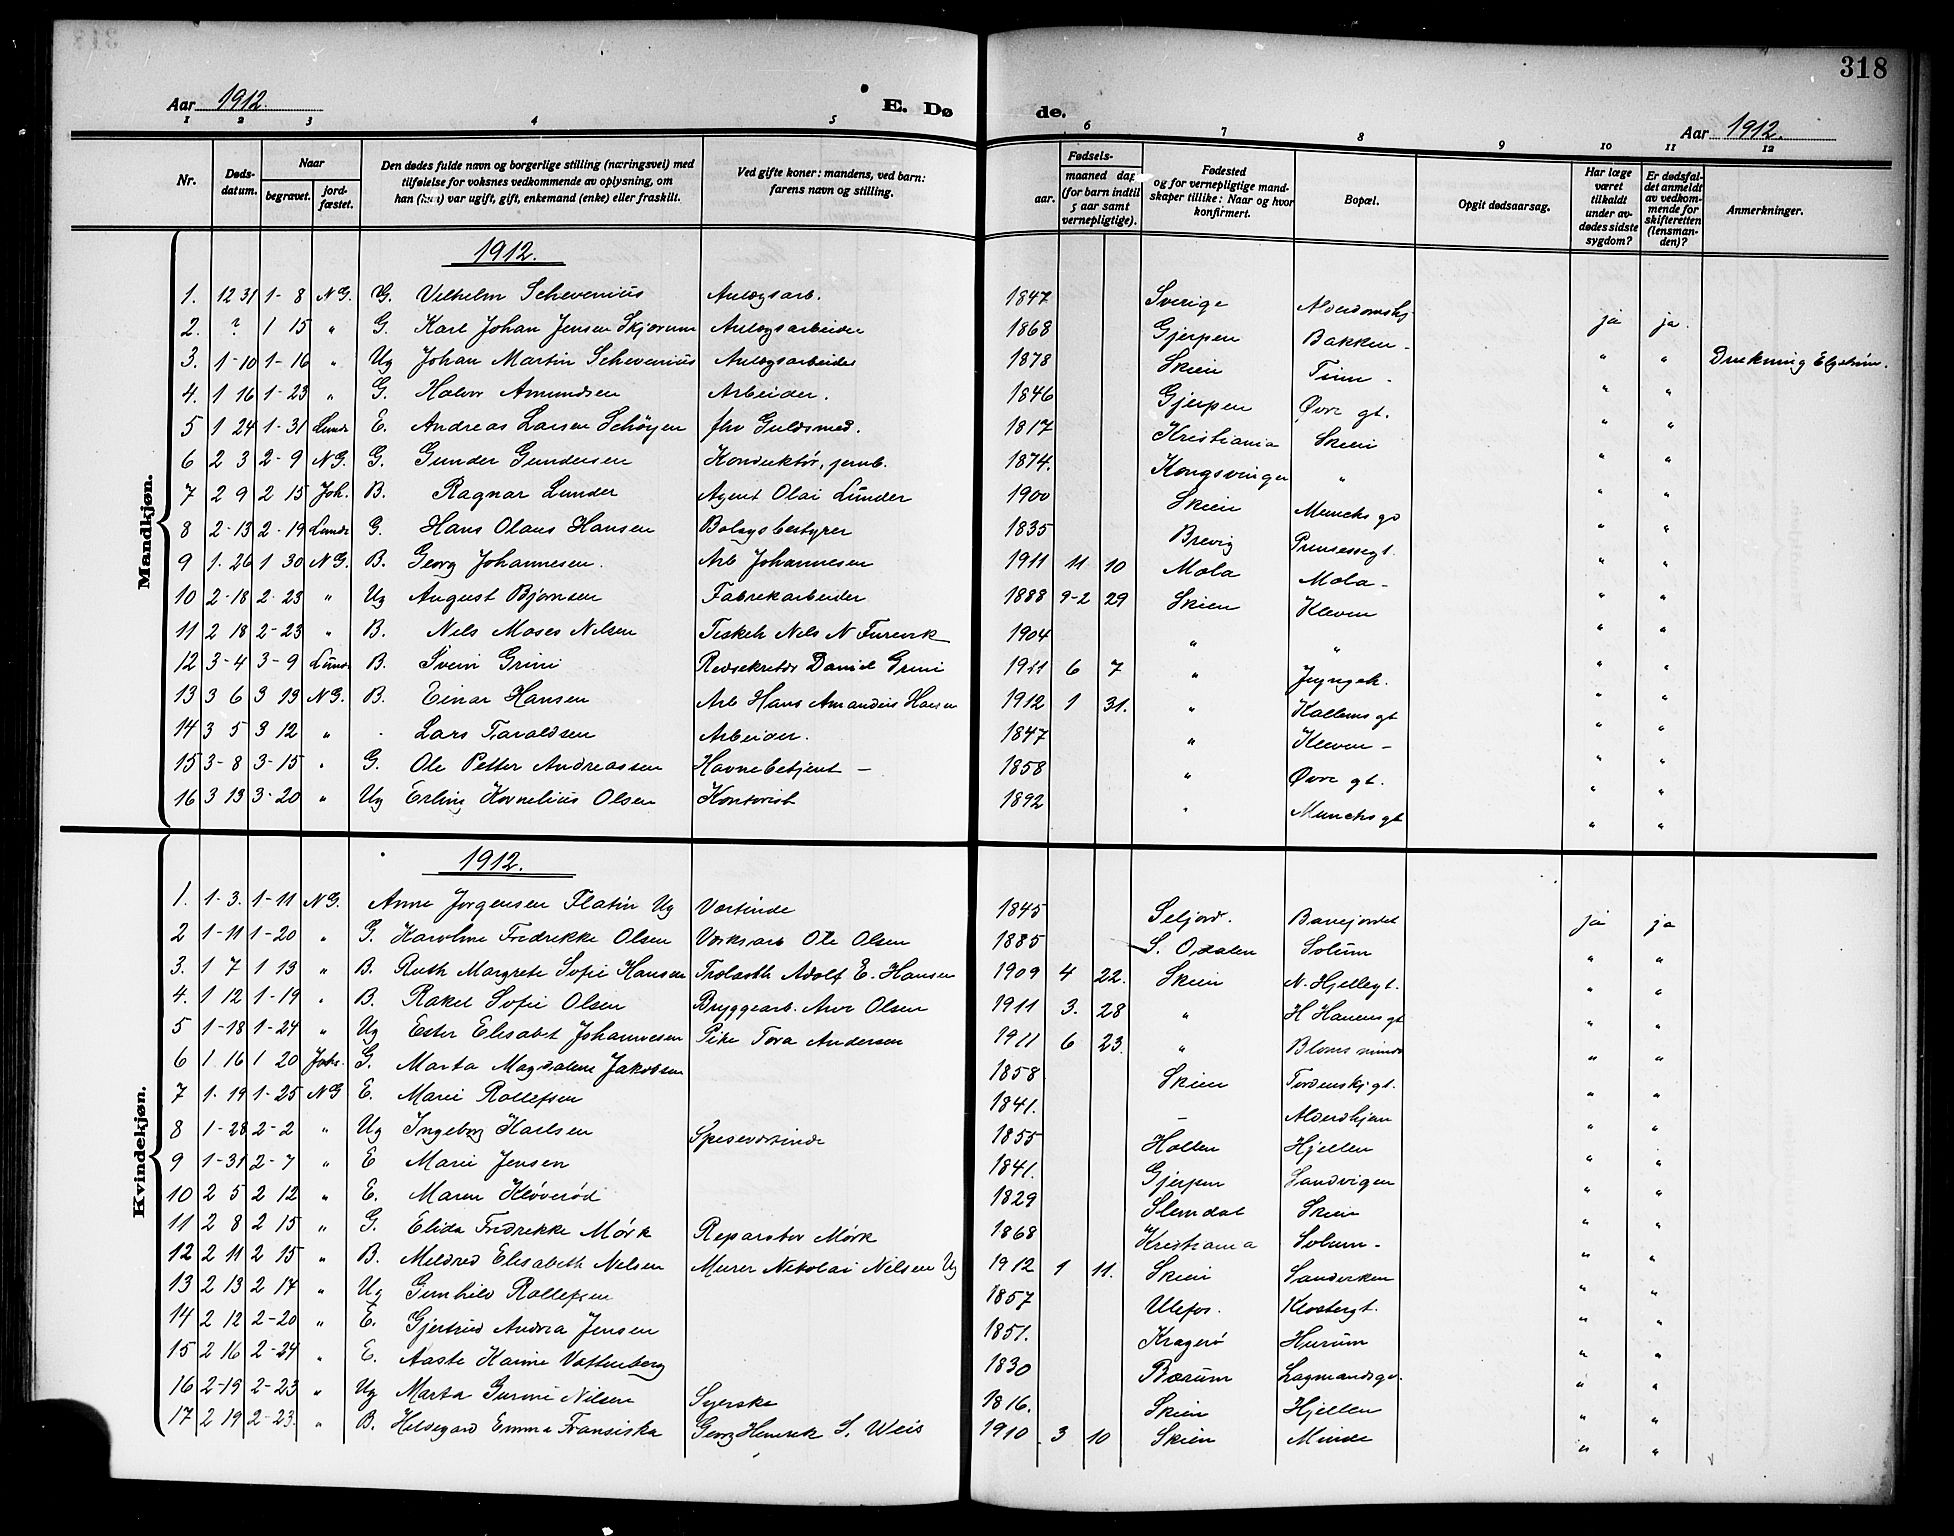 318
Aar 1912.
E. Døde.
Aar 1912.
1 2 3 4 5 6 7 8 9 10 11 12
Nr.
Døds-datum.
Naar
begravet.
jord-fæstet.
Den dødes fulde navn og borgerlige stilling (næringsvei) med
tilføielse for voksnes vedkommende av oplysning, om
han (hun) var ugift, gift, enkemand (enke) eller fraskilt.
Ved gifte koner: mandens, ved barn:
farens navn og stilling.
Fødsels-
aar.
maaned dag
(for barn indtil
5 aar samt
vernepligtige).
Fødested
og for vernepligtige mand-
skaper tillike: Naar og hvor
konfirmert.
Bopæl.
Opgit dødsaarsag.
Har læge
været
tilkaldt
under av-
dødes sidste
sygdom?
Er dødsfal-
det anmeldt
av vedkom-
mende for
skifteretten
(lensman-
den)?
Anmerkninger.
Mandkjøn.
1912.
1. 12 31 1-8 NG. G. Vilhelm Schevenius Anlægsarb. 1847 Sverige
2. ? 1 15 " G. Karl Johan Jensen Skjorum Anlægsarbeider 1868 Gjerpen Bakken - ja ja.
3. 1-10 1-16 " Ug Johan Martin Schevenius Anlægsarbeider 1878 Skien Tinn - " " Drukning
4. 1 16 1-23 " G. Halvor Amundsen Arbeider. 1846 Gjerpen Øvre gt. " "
5 1 24 1-31 Lunde E. Andreas Larsen Schöyen fhv Guldsmed. 1817 Kristiania Skien " "
6 2 3 2-9 NG. G. Gunder Gundersen Konduktør, jernb. 1874. Kongsvinger " " "
7 2 9 2 15 Joh. B. Ragnar Lunder Agent Olai Lunder 1900 Skien Munchs gd " "
8 2-13 2-19 Lunde G. Hans Olaus Hansen Bolagsbestyrer 1835 Brevig Prinsessegt. " "
9 1. 26 1 30 NG. B. Georg Johannesen. Arb Johannesen 1911 11 10 Mæla Mæla - " "
10 2-18 2-23 " Ug August Bjørnsen Fabrekarbeider 1888 9-2 29 Skien Kleven " "
11 2 18 2-23 " B. Nels Moses Nelsen Nels N 1904 " " " "
12 3-4 3-9 Lunde B. Svein Grini Redsekretær Daniel Grini 1911 6 7 " " "
13 3 6 3 13 NG. B. Einar Hansen Arb Hans Amandus Hansen 1912 1 31. " Kallems gt " "
14 3 5 3 12 " - Lars Taraldsen Arbeider. 1847 " Kleven - " "
15 3-8 3-15 " G. Ole Petter Andreassen Havnebetjent - 1858 " Øvre gt. " "
16 3 13 3-20 " Ug Erling Kornelius Olsen Kontorist 1892 " Munchs gt " "
Kvindekjøn.
1912.
1. 1-3. 1-11 NG. Anne Jørgensen Flatin Ug Værtinde 1845 Seljord. Banejordet ja ja
2 1-11 1-20 " G. Karoline Fredrekke Olsen Verksarb Ole Olsen 1885 S. Odalen Solum " "
3. 1 7 1 13 " B. Ruth Margrete Sofie Hansen Adolf E. Hansen 1909 4 22. Skien N. Hjellegt. " "
4. 1 12 1-19 " B. Rakel Sofie Olsen Bryggearb. Arve Olsen 1911 3. 28 " H Hanens gt " "
5 1-18 1-24 " Ug Ester Elisabet Johannesen Pike Tora Andersen 1911 6 23. " Blomsminde " "
6 1 16 1 20 Joh. G. Marta Magdalene Jakobsen 1858 Skien Tordenskj gt. " "
7 1. 19 1-25 NG E. Marie Rollefsen 1841. - Alderdhjem " "
8 1-28 2-2 " Ug Ingeborg Karlsen Speseværtinde 1855 Hollen Hjellen " "
9 1-31 2-7 " E Marie Jensen 1841. Gjerpen Sandvigen " "
10 2 5 2 12 " E. Maren Kløverød 1829 Slemdal Skien " "
11 2 8 2 15 " G. Elida Fredrekke Mørk Reparatør Mørk 1868 Kristiania Solum - " "
12 2 11 2 15 " B. Mildred Elisabeth Nelsen Murer Nikolai Nilsen Ug 1912 1 11. Skien " "
13 2 13 2 17 " Ug Gunhild Rollefsen 1857 Ulefos. Klostergt. " "
14 2 12 2-20 " E. Gjertrud Andrea Jensen 1851. Kragerø Hurum " "
15 2 16 2-24 " E. Aaste Karine Vattenberg 1830 Bærum Lagmandsgd. " "
16 2-19 2-23 " Ug Marta Gurine Nilsen Syerske 1816. Skien Hjellen " "
17 2 19 2-23. " B. Hildegard Emma Fransiska Georg Henrik S. Weis 1910 3 10 Skien Minde " "